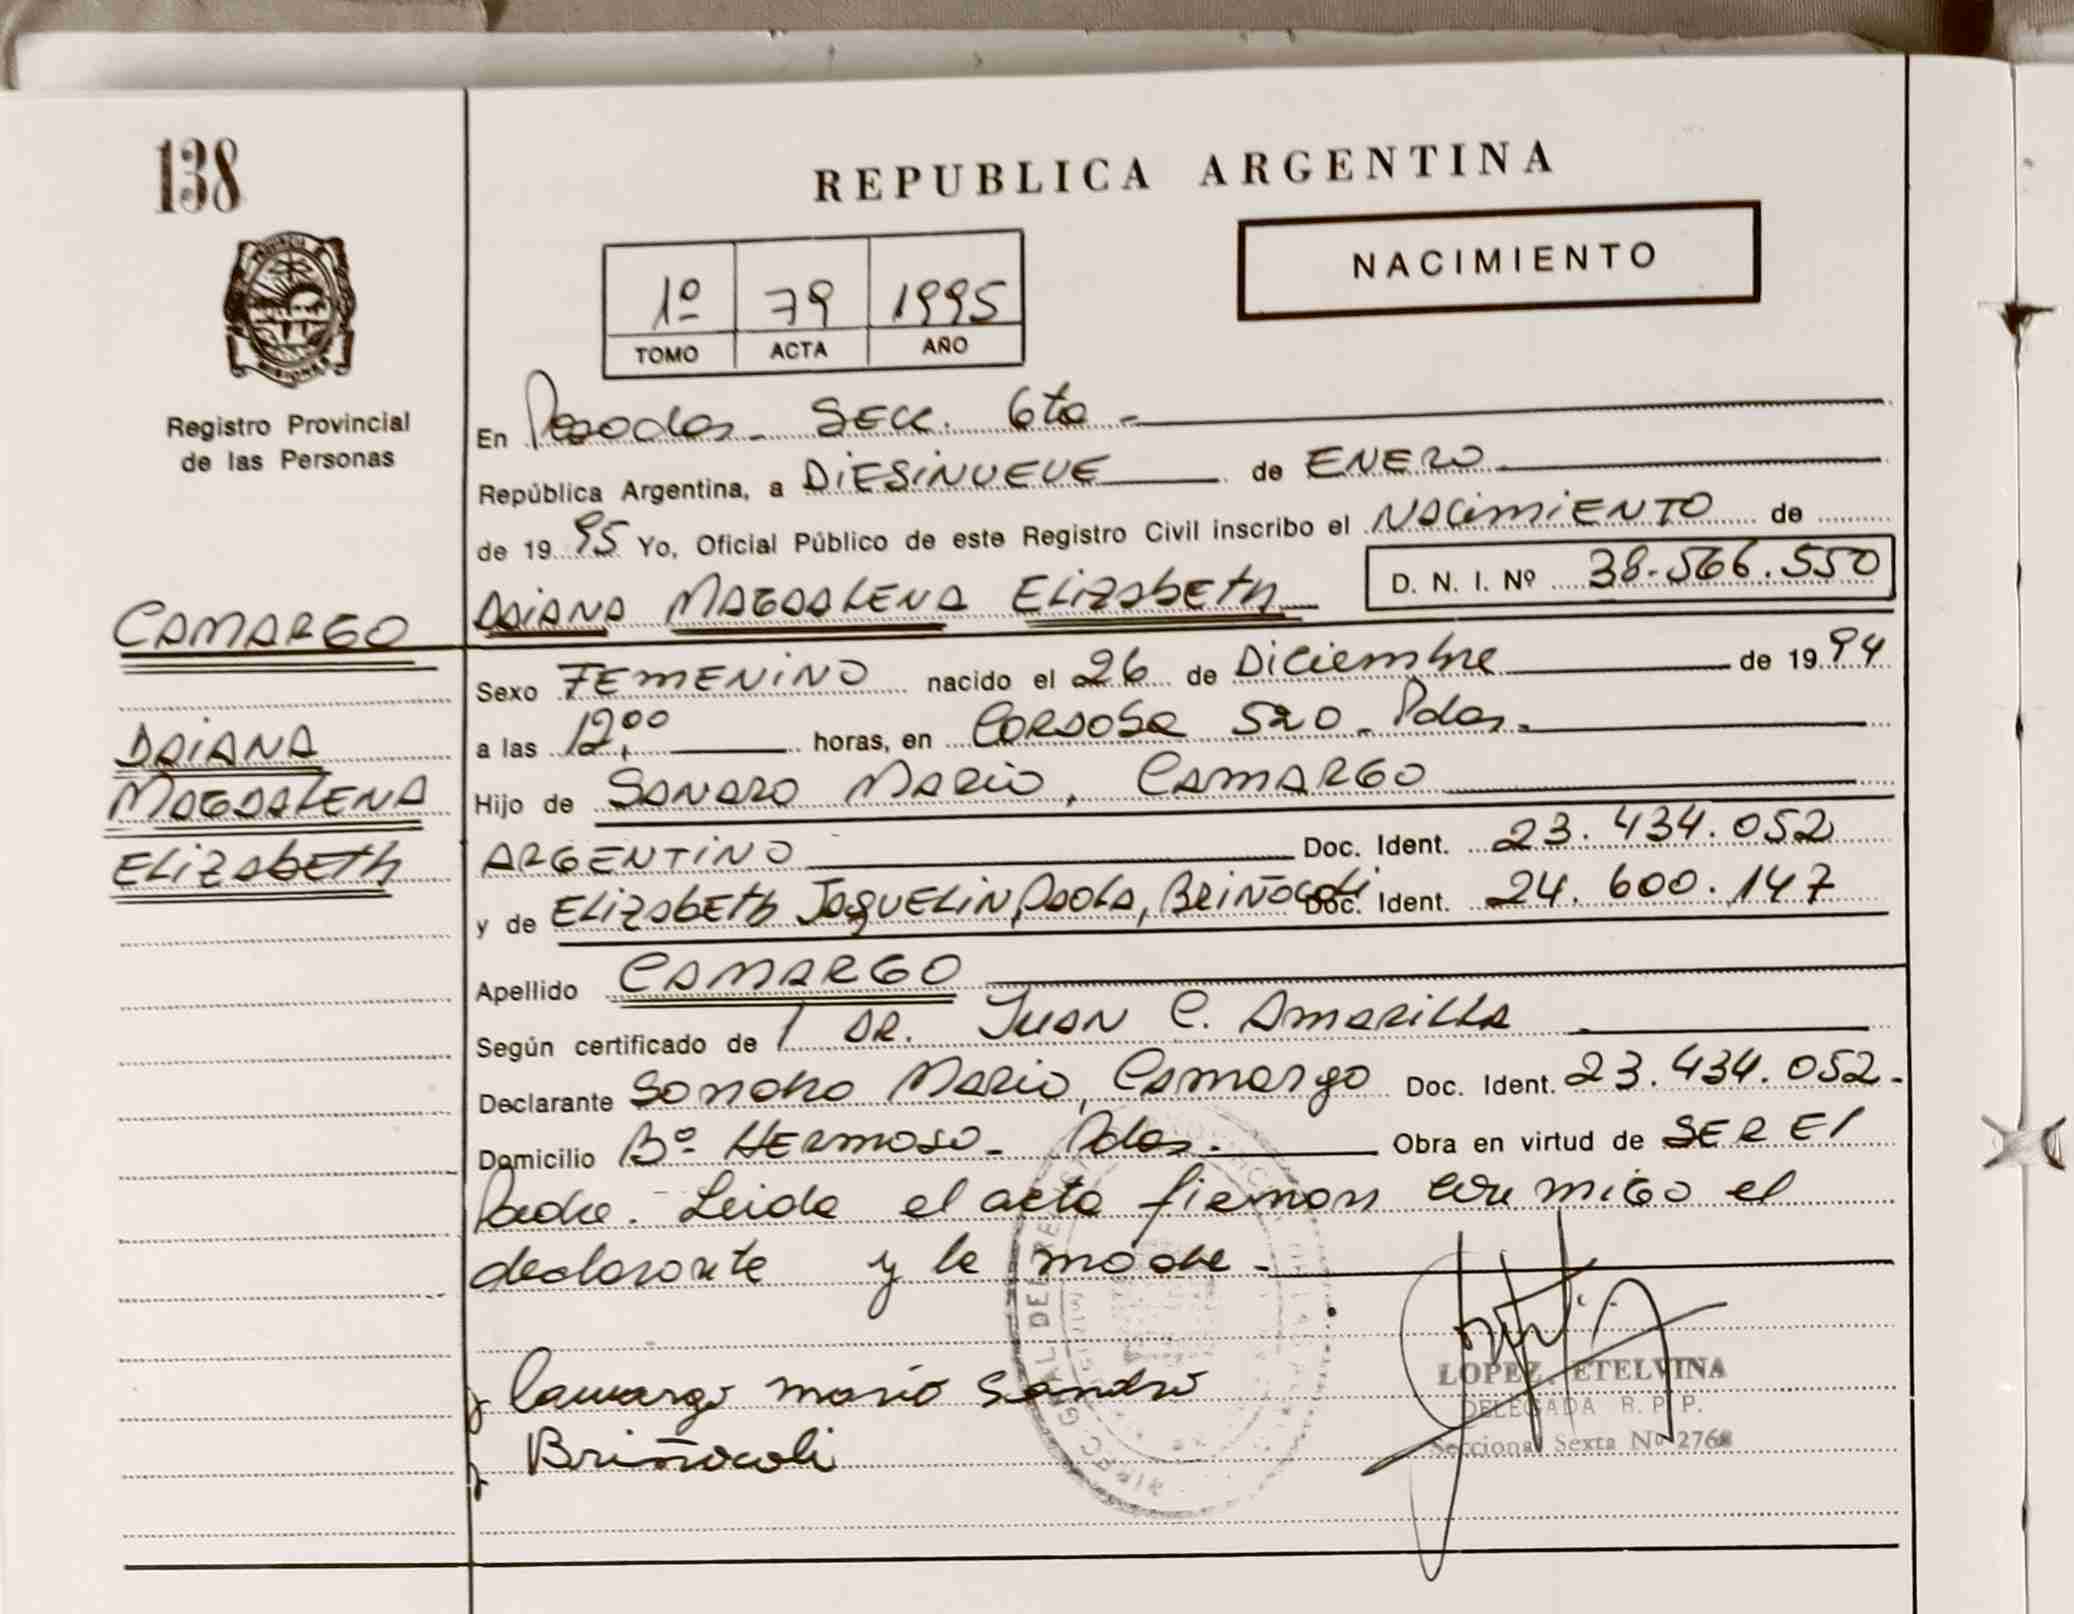 138
REPUBLICA ARGENTINA
NACIMIENTO
1º 79 1995
TOMO ACTA AÑO
PROVINCIA MISIONES
Registro Provincial
de las Personas
En Posadas - SECC. 6ta -
República Argentina, a DIESINUEVE de ENERO
de 1995 Yo, Oficial Público de este Registro Civil inscribo el NACIMIENTO de
DAIANA MAGDALENA ELIZABETH D. N. I. Nº 38.566.550
CAMARGO
DAIANA
MAGDALENA
ELIZABETH
Sexo FEMENINO nacido el 26 de Diciembre de 1994
a las 12,00 horas, en CORDOBA 520 - Pdas -
Hijo de SANDRO MARIO, CAMARGO
ARGENTINO Doc. Ident. 23.434.052
y de ELIZABETH JAQUELIN PAOLA, BRIÑOCOLI Doc. Ident. 24.600.147
Apellido CAMARGO
Según certificado de / DR. JUAN C. AMARILLA
Declarante SANDRO MARIO, CAMARGO Doc. Ident. 23.434.052-
Domicilio Bº HERMOSO - Pdas. Obra en virtud de SER El
Padre. Leida el acta firman conmigo el
declarante y la madre -
Camargo Mario Sandro
Briñocoli
LOPEZ, ETELVINA
DELEGADA R. P. P.
Seccional Sexta Nº 2768